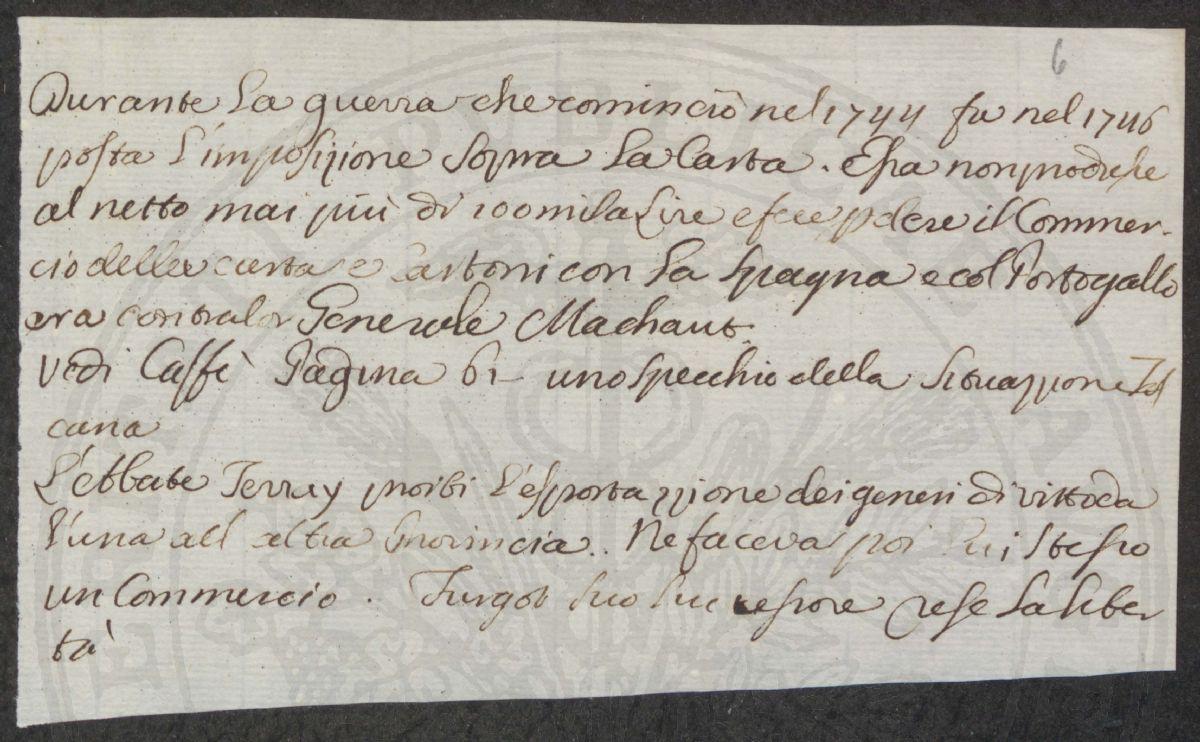 6
Durante la guerra che cominciò nel 1744 fu nel 1746
posta l'imposizione sopra la Carta. Essa non produsse
al netto mai più di 100 mila Lire e fece perdere il Commer-
cio della carta e Cartoni con la Spagna e col Portogallo
era contralor Generale Machaut.
Vedi Caffè Pagina 61 uno specchio della situazzione Tos
cana
L'abbate Terray proibì l'esportazzione dei generi di vitto da
l'una all'altra Provincia. Ne faceva poi lui stesso
un Commercio. Turgot suo successore rese la liber
tà